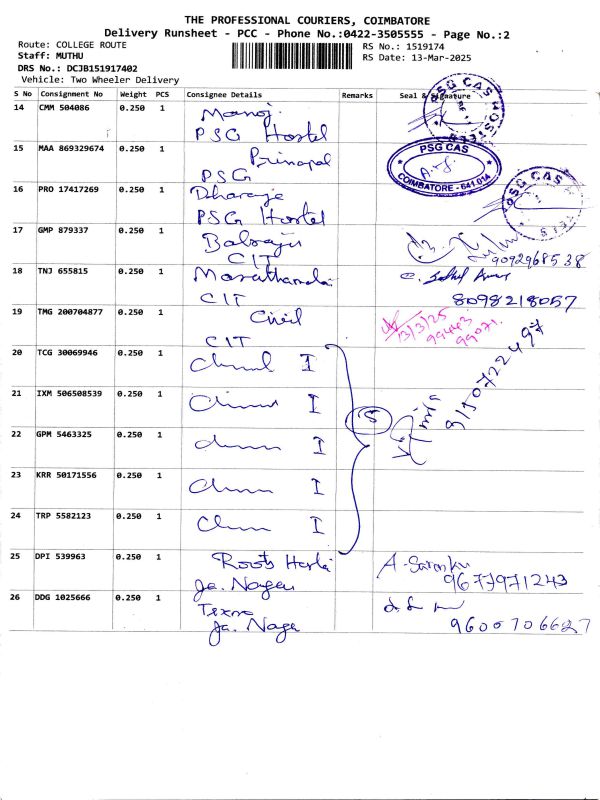 THE PROFESSIONAL COURIERS, COIMBATORE
Delivery Runsheet - PCC - Phone No.:0422-3505555 - Page No.:2
Route: COLLEGE ROUTE
RS No.: 1519174
Staff: MUTHU
RS Date: 13-Mar-2025
DRS No.: DCJB151917402
Vehicle: Two Wheeler Delivery
S No Consignment No Weight PCS Consignee Details Remarks Seal & Signature
14 CMM 504086 0.250 1 Manoj
PSG Hostel
PSG CAS
15 MAA 869329674 0.250 1 Principal
PSG
PSG CAS
COIMBATORE - 641 014
16 PRO 17417269 0.250 1
PSG Hostel
PSG CAS
17 GMP 879337 0.250 1 Balraju
CIT
9092968538
18 TNJ 655815 0.250 1
CIT
8098218057
19 TMG 200704877 0.250 1 Civil
CIT
13/3/25
99443
99071
20 TCG 30069946 0.250 1 I
21 IXM 506508539 0.250 1 I
5
9150722497
22 GPM 5463325 0.250 1 I
23 KRR 50171556 0.250 1 I
24 TRP 5582123 0.250 1 I
25 DPI 539963 0.250 1 Roots
Ja. Nagar
9677971243
26 DDG 1025666 0.250 1
Ja. Naga
9600706627